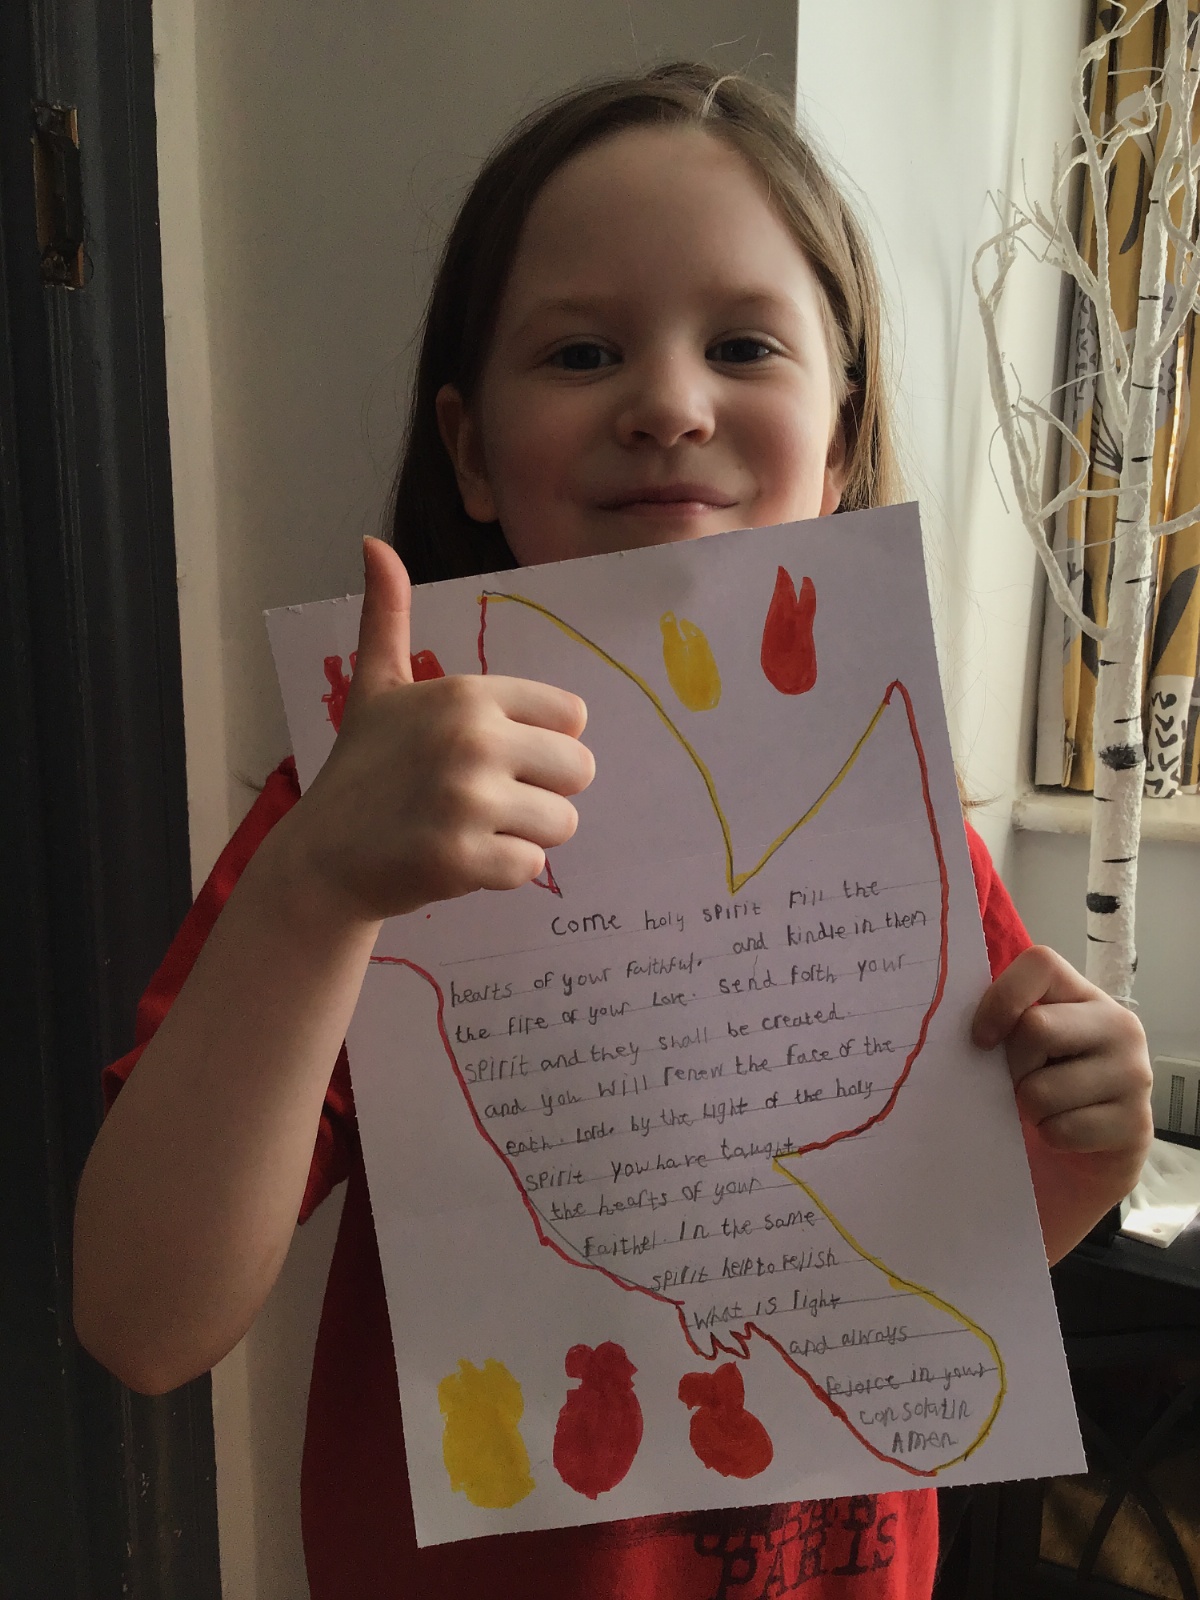 Come holy spirit Fill the
hearts of your Faithful. and kindle in them
the fire of your Love. Send forth your
spirit and they shall be created.
and you will renew the face of the
eath. Lord. by the Light of the holy
spirit you have taught
the hearts of your
Faithel. In the same
spirit help to relish
what is right
and always
rejoice in your
consolatin
Amen
URBAN
PARIS